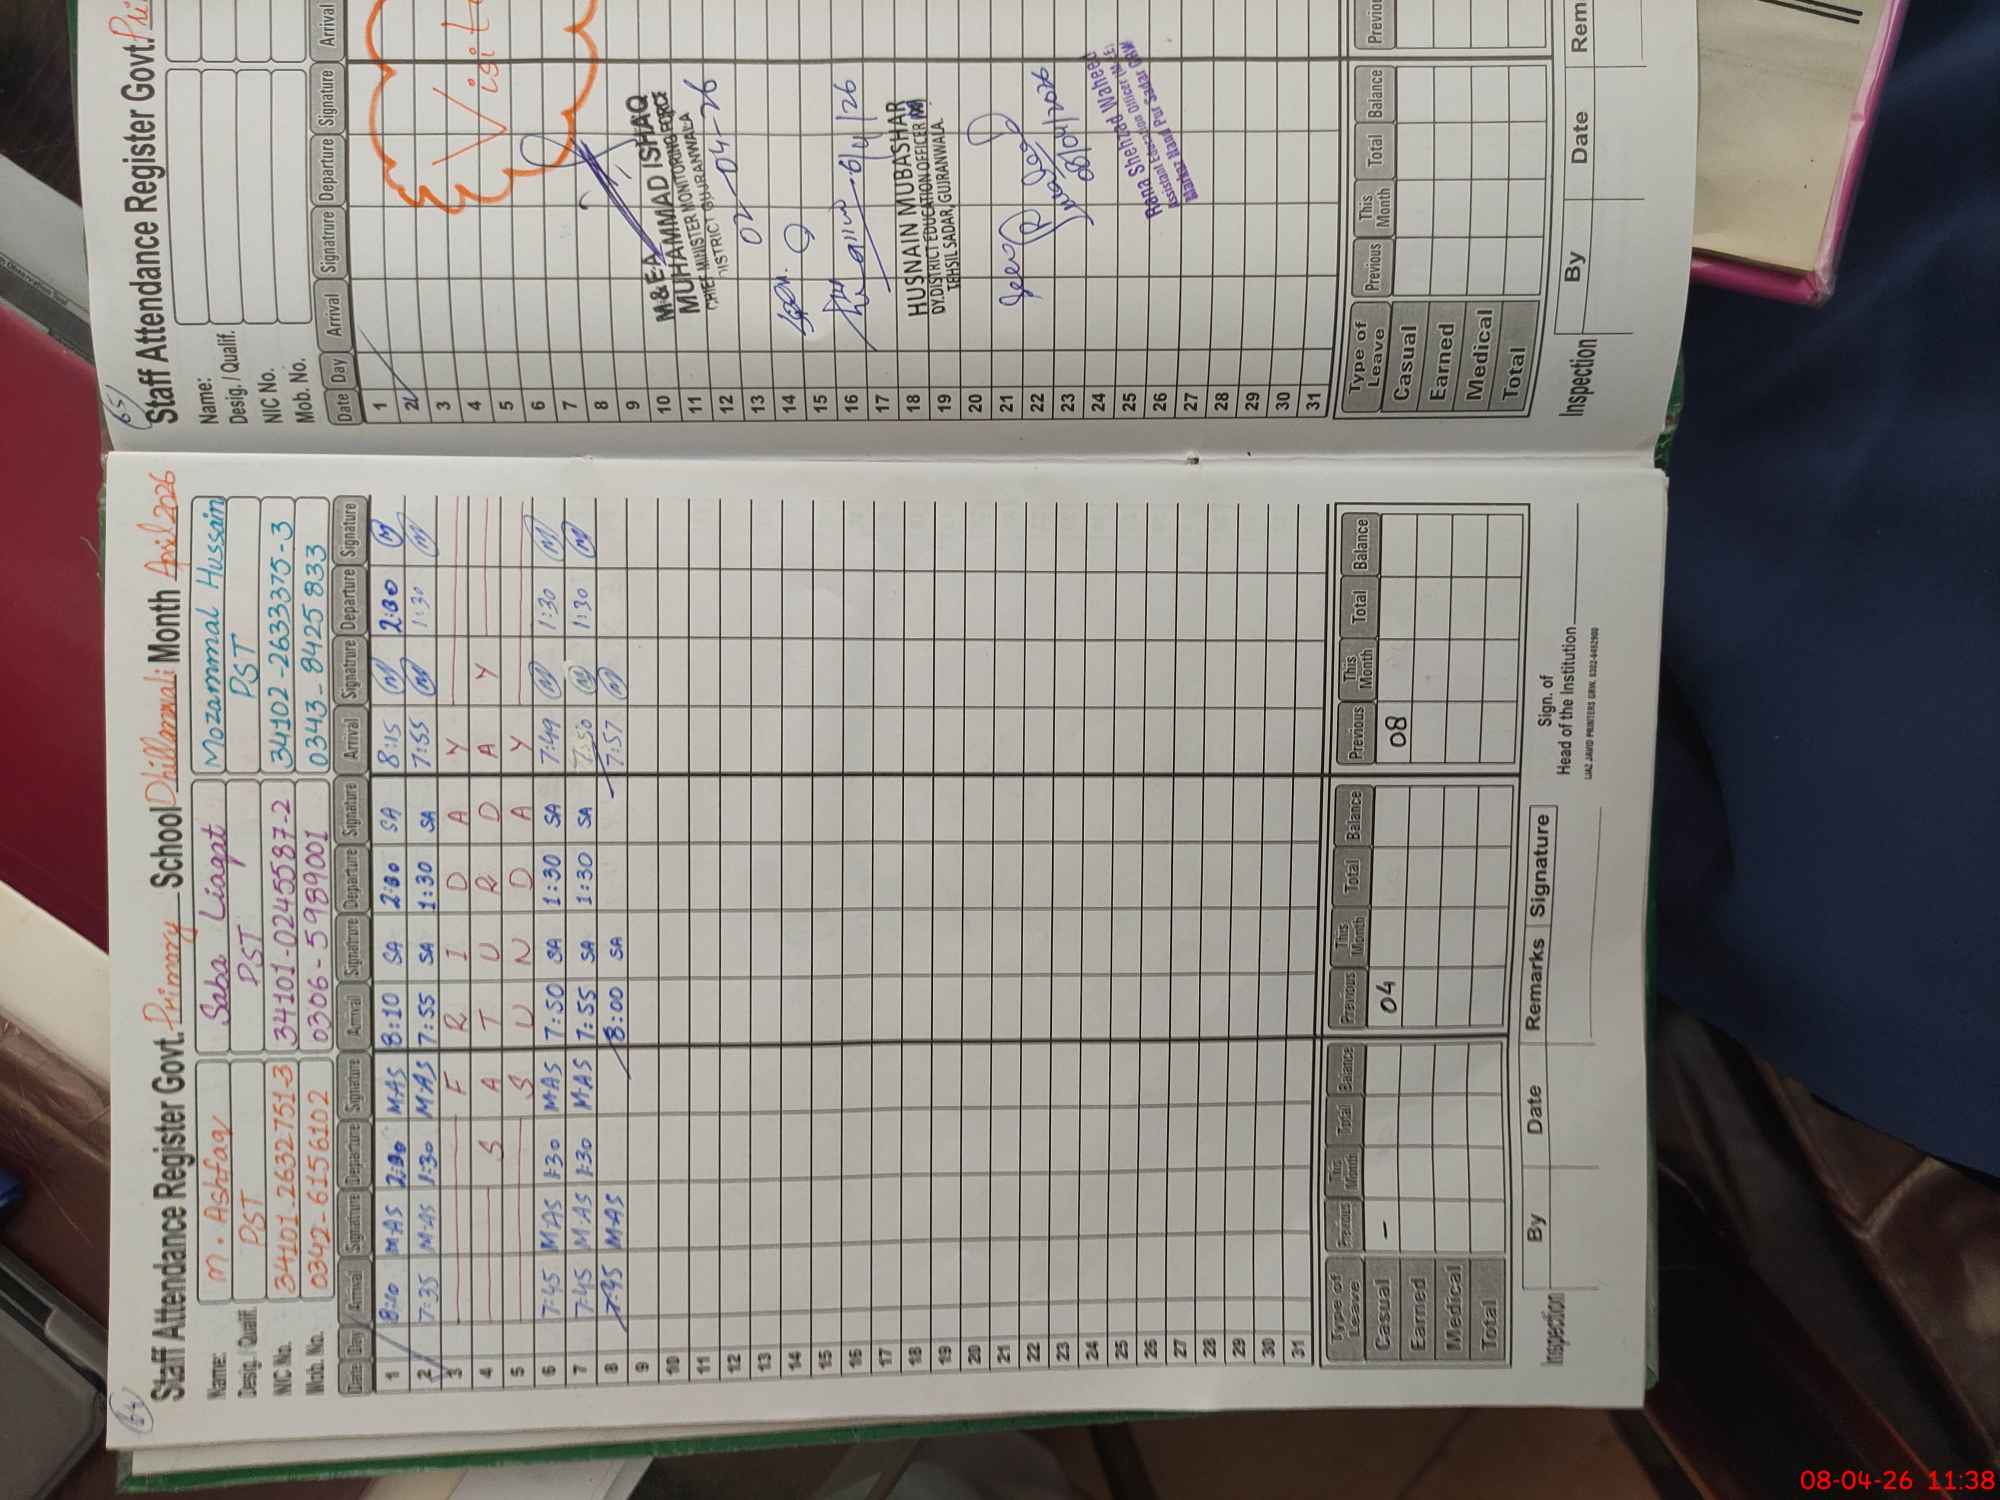 64
Staff Attendance Register Govt. Primary School Dhillanwali Month April 2026
Name: M. Ashfaq Saba Liaqat Mozammal Hussain
Desig. / Qualif. PST PST PST
NIC No. 34101-2632751-3 34101-0245587-2 34102-2633375-3
Mob. No. 0342-6156102 0306-5989001 0343-8425833
Date Day Arrival Signature Departure Signature Arrival Signature Departure Signature Arrival Signature Departure Signature
1 8:10 M.AS 2:30 M.AS 8:10 SA 2:30 SA 8:15 M 2:30 M
2 7:35 M.AS 1:30 M.AS 7:55 SA 1:30 SA 7:55 M 1:30 M
3 F R I D A Y
4 S A T U R D A Y
5 S U N D A Y
6 7:45 M.AS 1:30 M.AS 7:50 SA 1:30 SA 7:49 M 1:30 M
7 7:45 M.AS 1:30 M.AS 7:55 SA 1:30 SA 7:50 M 1:30 M
8 7:45 M.AS 8:00 SA 7:57 M
9
10
11
12
13
14
15
16
17
18
19
20
21
22
23
24
25
26
27
28
29
30
31
Type of Leave Previous This Month Total Balance Previous This Month Total Balance Previous This Month Total Balance
Casual – 04 08
Earned
Medical
Total
Inspection By Date Remarks Signature
Sign. of
Head of the Institution
65
Staff Attendance Register Govt. Pri
Name:
Desig. / Qualif.
NIC No.
Mob. No.
Date Day Arrival Signature Departure Signature Arrival
1
2
3
4
5
6
7
8
9
10
11
12
13
14
15
16
17
18
19
20
21
22
23
24
25
26
27
28
29
30
31
Visit
M&EA
MUHAMMAD ISHAQ
CHIEF MINISTER MONITORING FORCE
DISTRICT GUJRANWALA
02-04-26
6/4/26
HUSNAIN MUBASHAR
DY.DISTRICT EDUCATION OFFICER
TEHSIL SADAR, GUJRANWALA.
08/04/2026
Rana Shehzad Waheed
Assistant Education Officer
Markaz Nand Pur Sadar GRW
Type of Leave Previous This Month Total Balance Previous
Casual
Earned
Medical
Total
Inspection By Date Rem
08-04-26 11:38